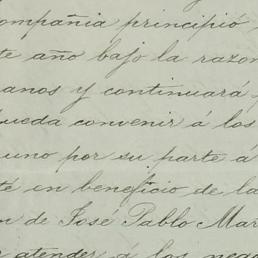 ompañia principió
te año bajo la razon
anos y continuará
ueda convenir á los
uno por su parte á
té en beneficio de la
n de José Pablo Mar
atender á los nego